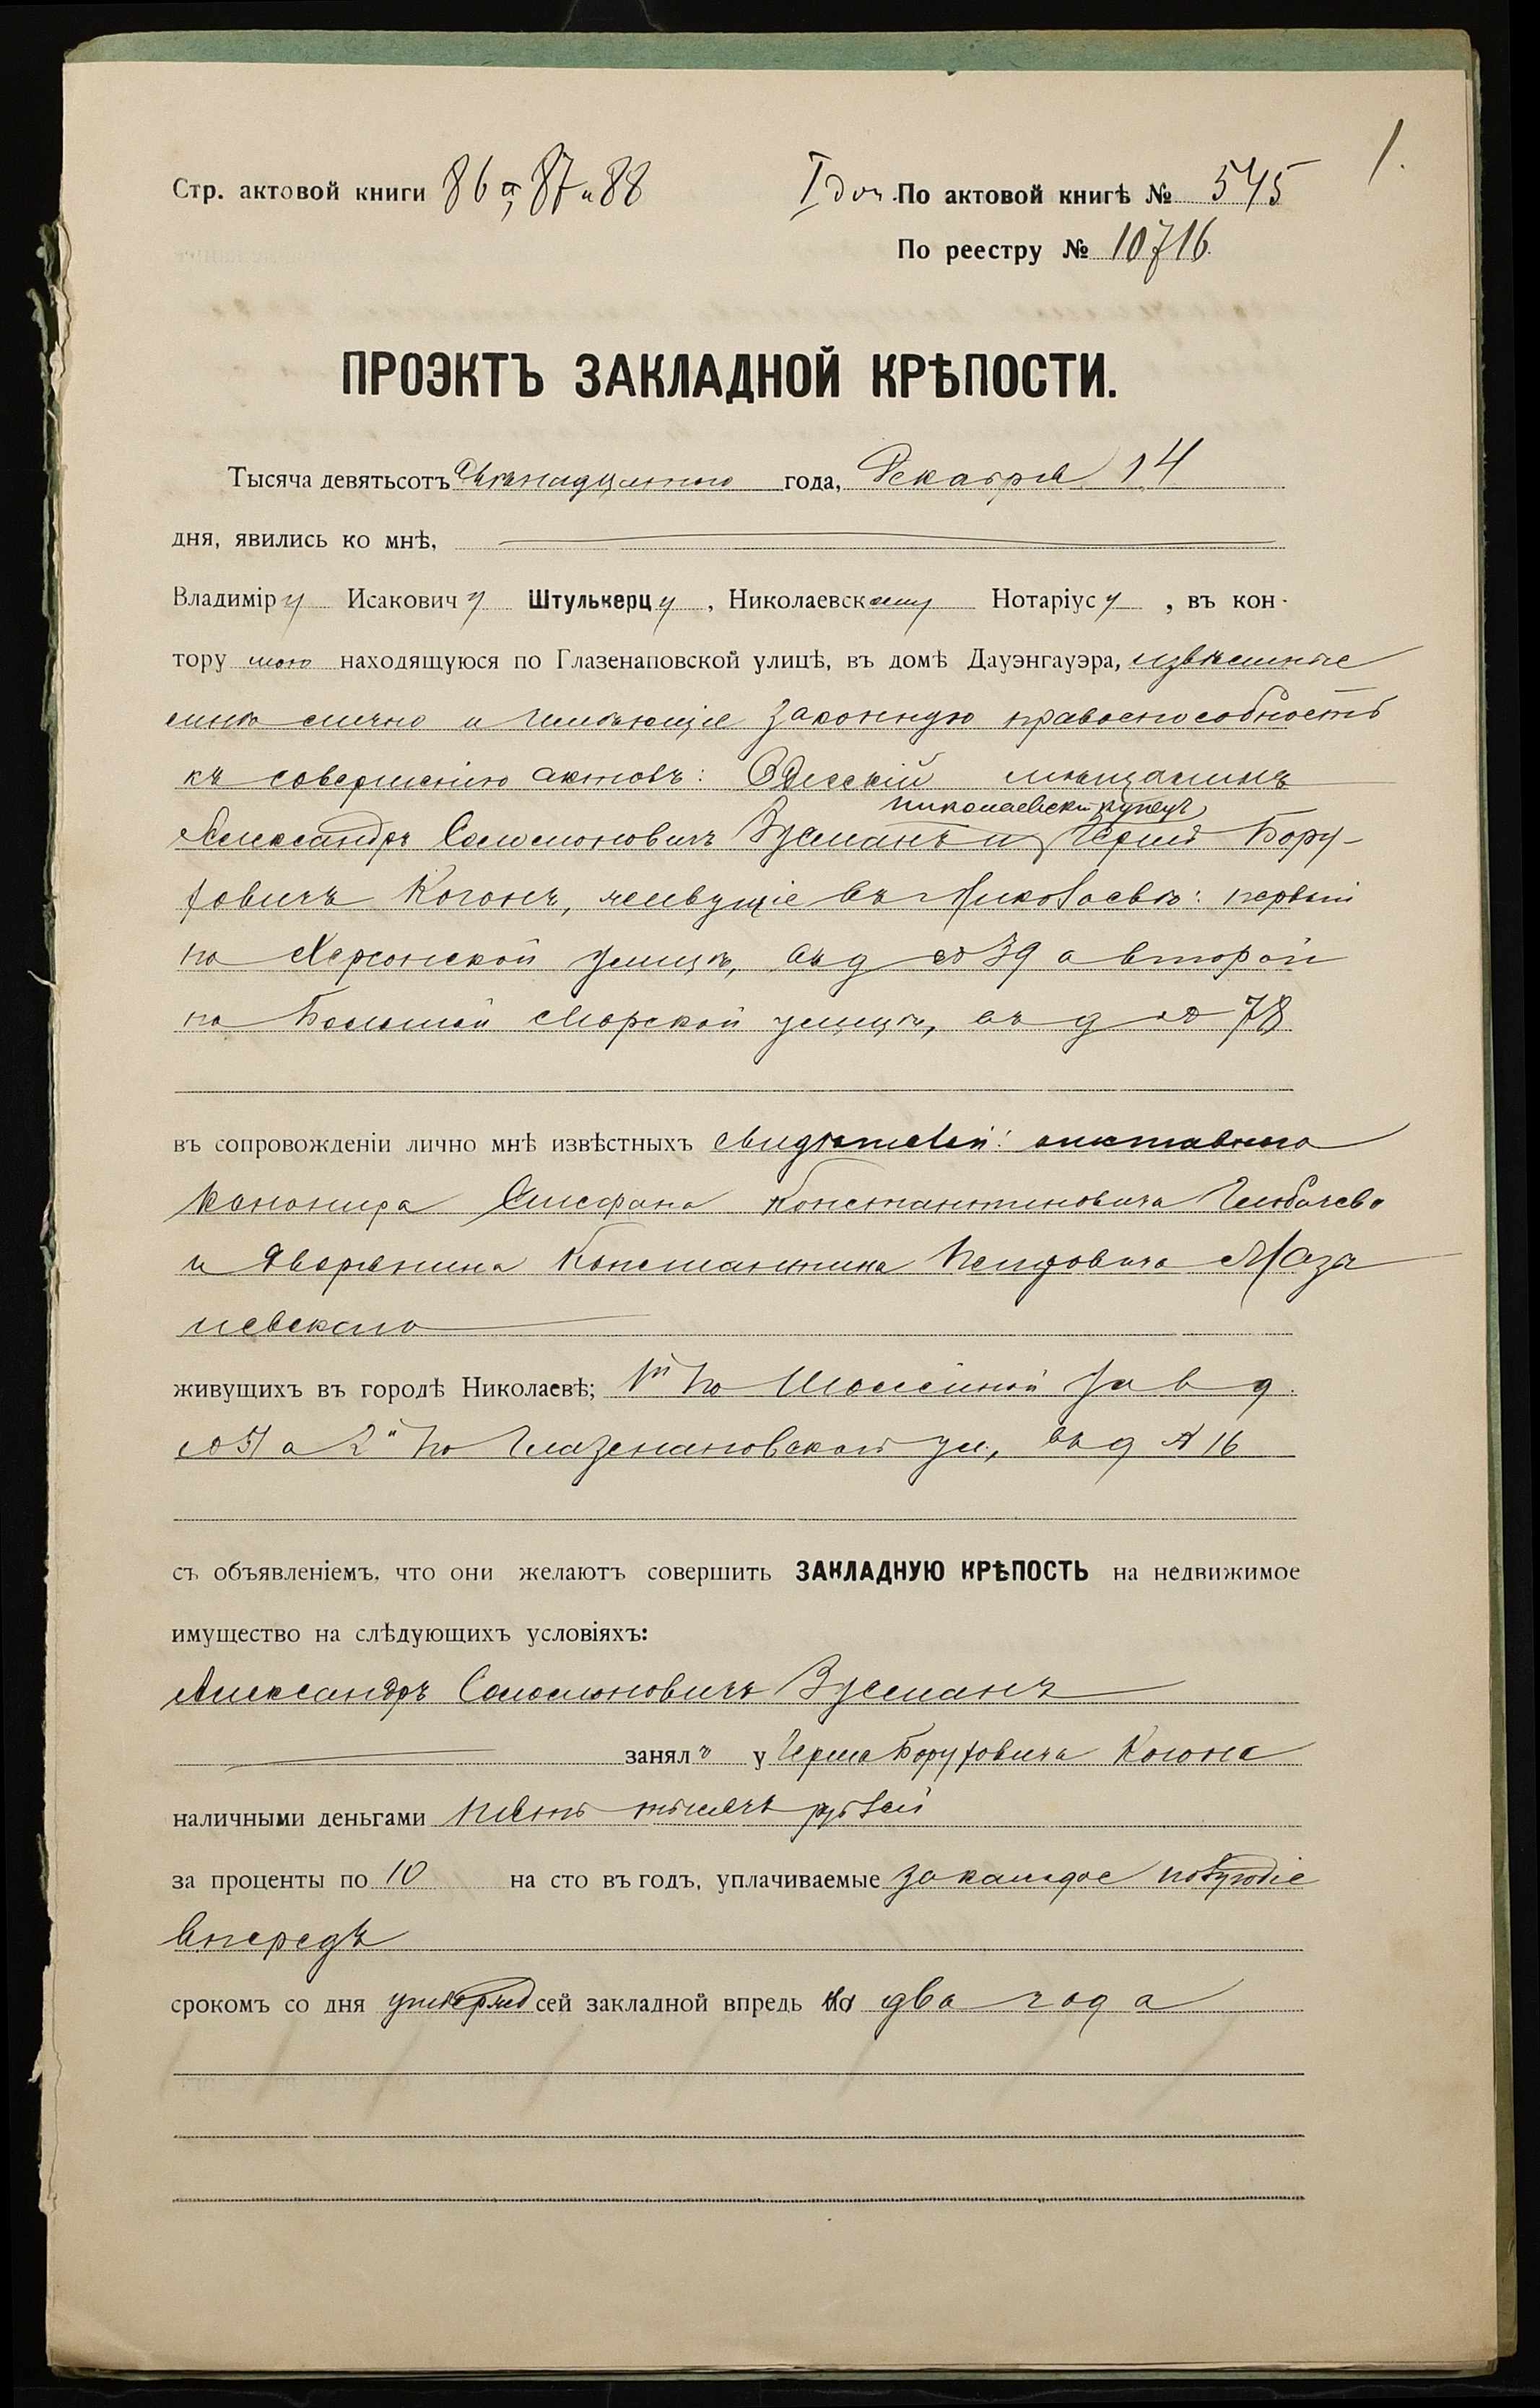 1.
Стр. актовой книги 86, 87 и 88
По актовой книгѣ № 545
По реестру № 10716.
ПРОЭКТЪ ЗАКЛАДНОЙ КРѢПОСТИ.
Тысяча девятьсотъ года, Декабря 14
дня, явились ко мнѣ,
Владиміру Исаковичу Штулькерцу, Николаевскому Нотаріусу, въ кон-
тору мою находящуюся по Глазенаповской улицѣ, въ домѣ Дауэнгауэра, извѣстные
мнѣ лично и имѣющіе законную правоспособность
къ совершенію актовъ: Одесскій мѣщанинъ
николаевскій купецъ
Александръ Соломоновичъ Зусманъ и Бору-
ховичъ Когонъ, живущіе въ Николаевѣ: первый
по Херсонской улицѣ, въ д № 39 а второй
по Большой Морской улицѣ, въ д № 78
въ сопровожденіи лично мнѣ извѣстныхъ свидѣтелей: отставного
канонира Константиновича
и Дворянина Константина Петровича Маза
невскаго
живущихъ въ городѣ Николаевѣ; 1й по въ д.
№ 51 а 2й по Глазенаповской ул., въ д № 16
съ объявленіемъ, что они желаютъ совершить ЗАКЛАДНУЮ КРѢПОСТЬ на недвижимое
имущество на слѣдующихъ условіяхъ:
Александръ Соломоновичъ Зусманъ
занялъ у Боруховича Когона
наличными деньгами пять тысячъ рублей
за проценты по 10 на сто въ годъ, уплачиваемые за каждое полугодіе
впередъ
срокомъ со дня утвержд сей закладной впредь на два года